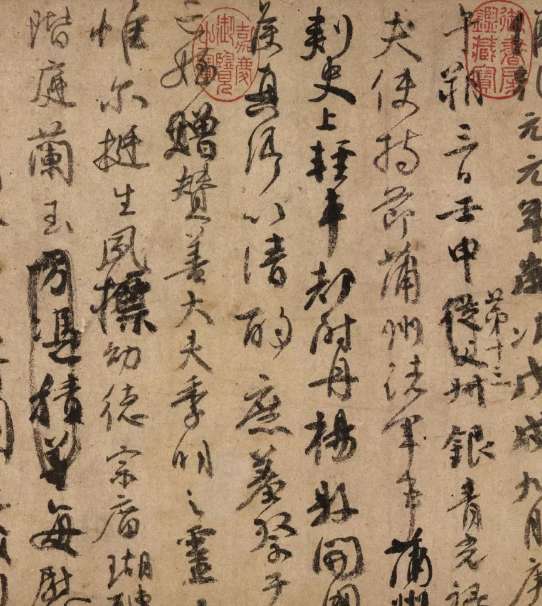 御書房鑑藏寶
嘉慶御覽之寶
乾元元年歲次戊戌九月庚
午朔三日壬申第十三從父叔銀青光祿
夫使持節蒲州諸軍事蒲州
刺史上輕車都尉丹楊縣開國
侯真卿以清酌庶羞祭于
亡姪贈贊善大夫季明之靈
惟爾挺生夙標幼德宗廟瑚璉
階庭蘭玉方憑積善每慰